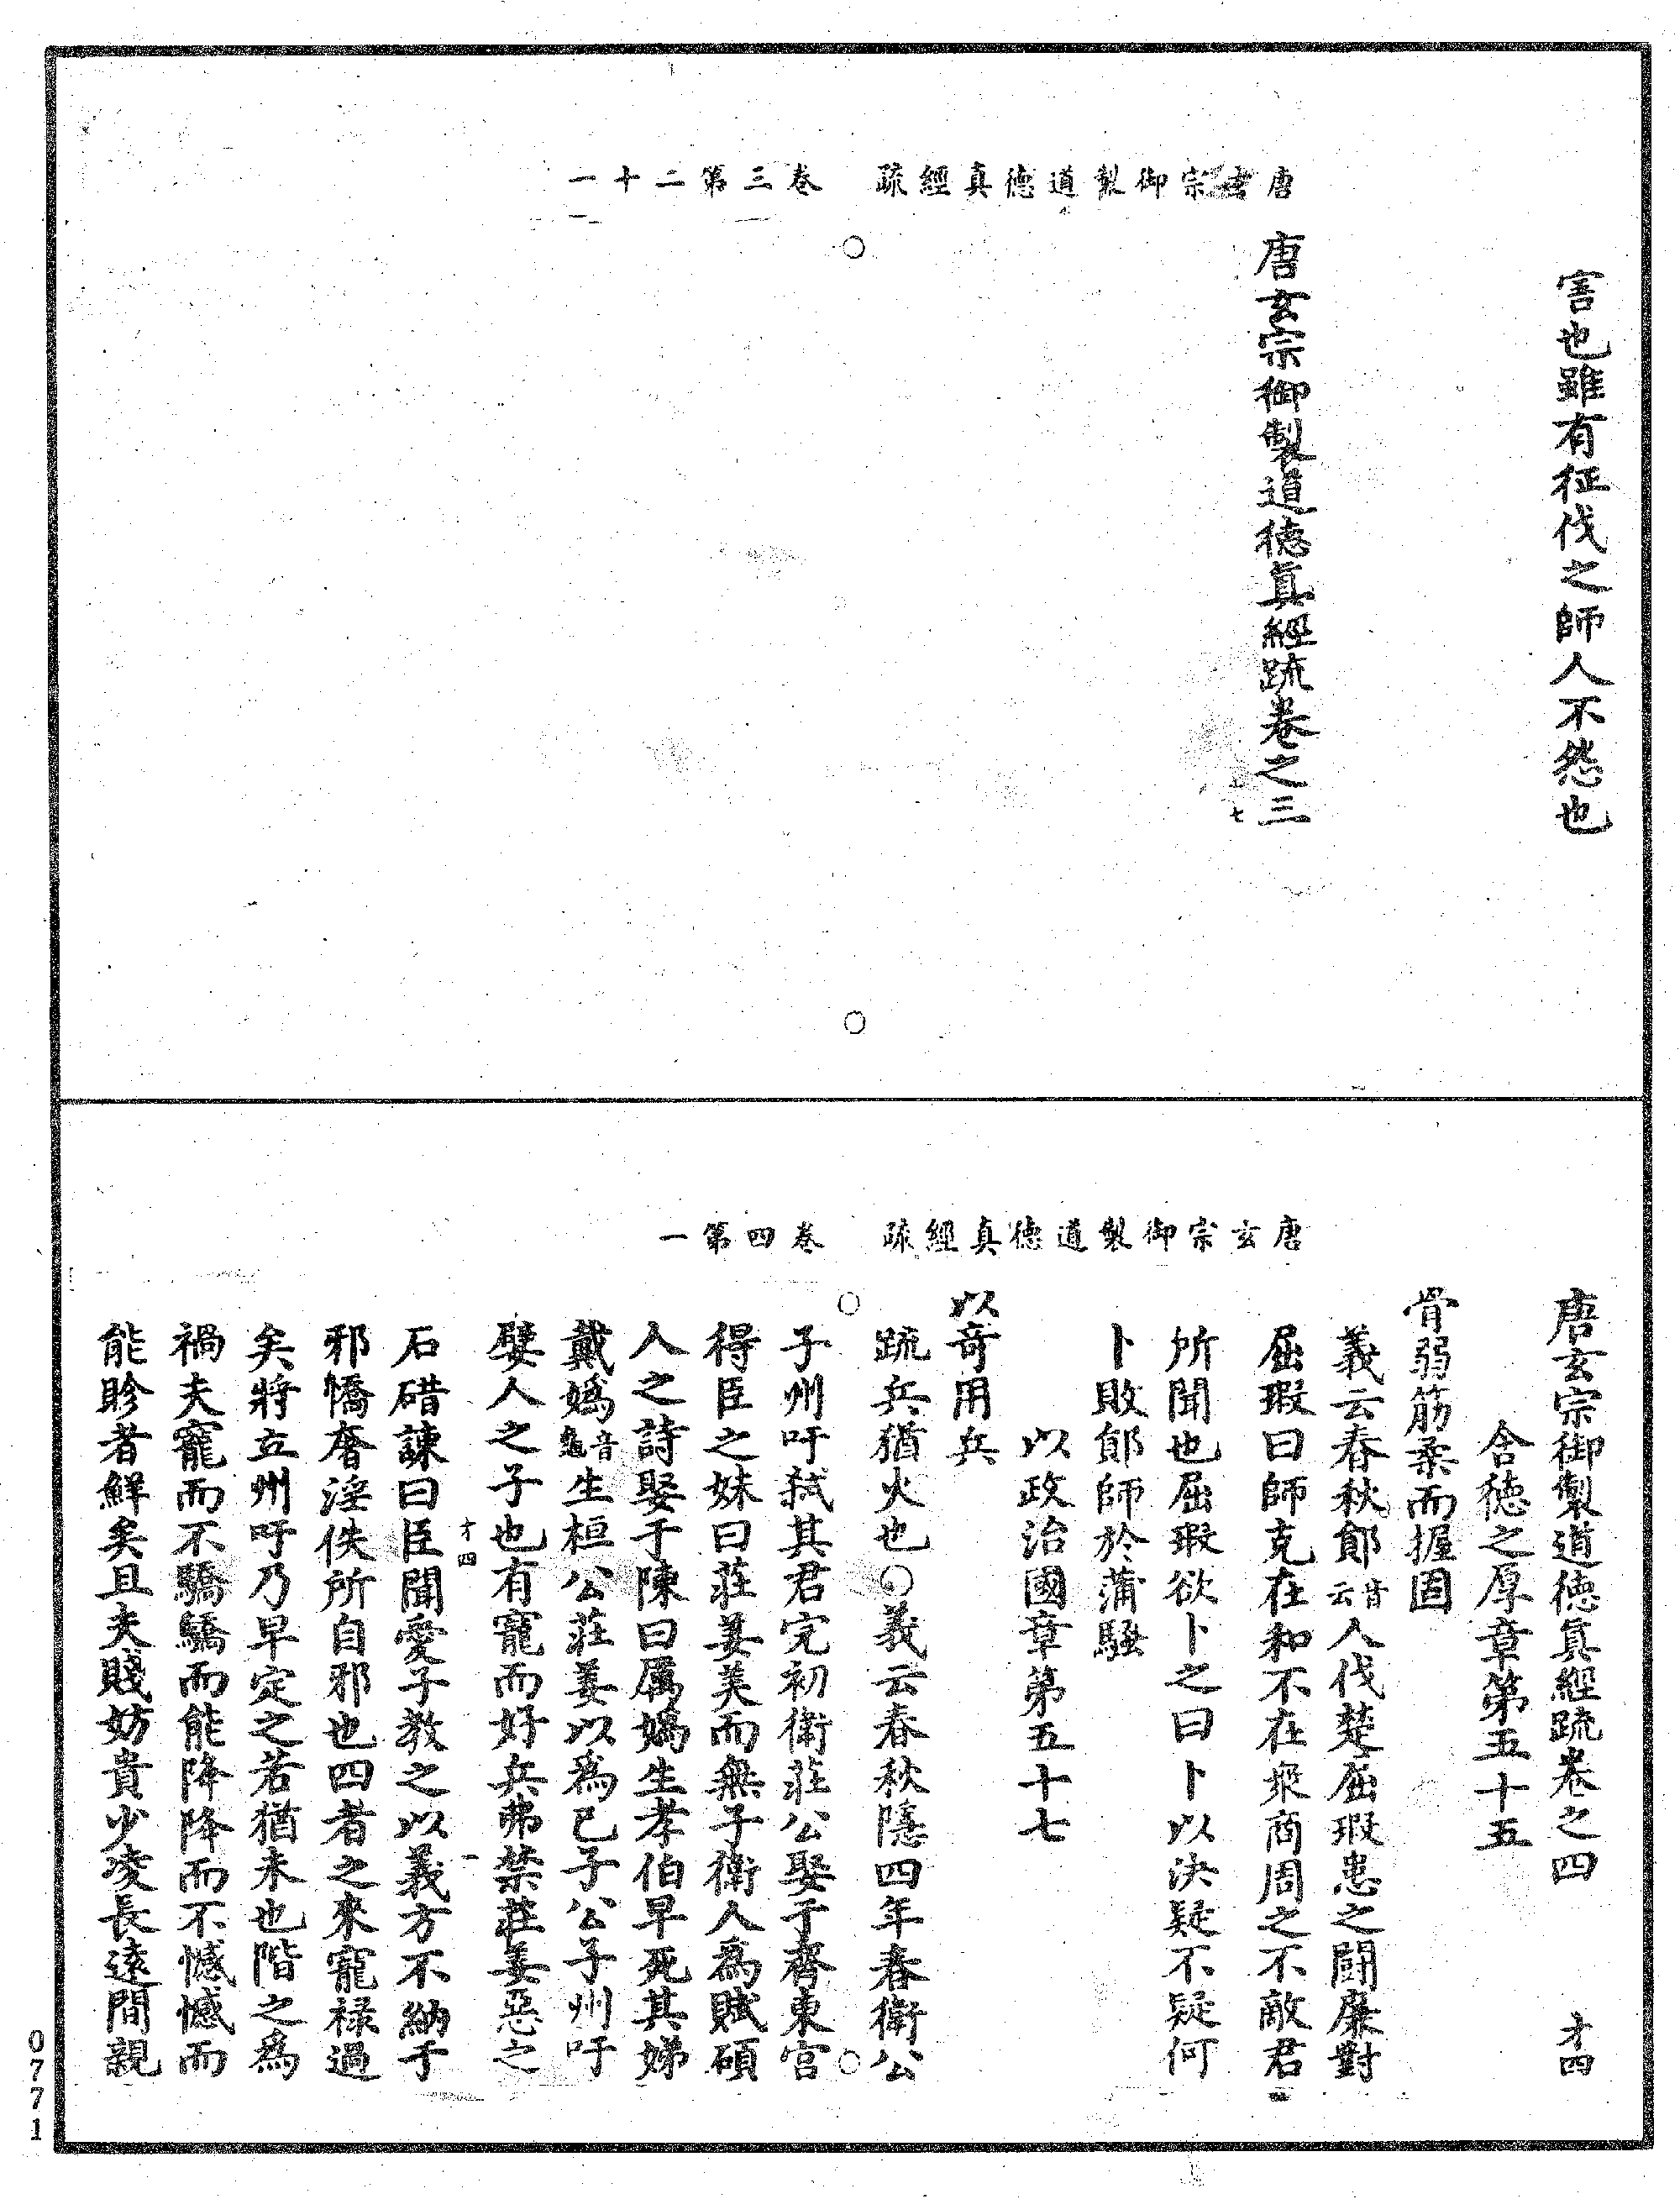 唐玄宗御製道德真經疏 卷三第二十一
害也雖有征伐之師人不怨也
唐玄宗御製道德真經疏卷之三
七
唐玄宗御製道德真經疏 卷四第一
唐玄宗御製道德真經疏卷之四 才四
含德之厚章第五十五
骨弱筋柔而握固
義云春秋鄖音云人伐楚屈瑕患之鬬廉對
屈瑕曰師克在和不在衆商周之不敵君
所聞也屈瑕欲卜之曰卜以決疑不疑何
卜敗鄖師於蒲騷
以政治國章第五十七
以奇用兵
疏兵猶火也○義云春秋隱四年春衛公
子州吁弑其君完初衛莊公娶于齊東宮
得臣之妹曰莊姜美而無子衛人為賦碩
人之詩娶于陳曰厲嬀生孝伯早死其娣
戴嬀音龜生桓公莊姜以為已子公子州吁
嬖人之子也有寵而好兵弗禁莊姜惡之
才四 一
石碏諫曰臣聞愛子教之以義方不納于
邪憍奢淫佚所自邪也四者之來寵祿過
矣將立州吁乃早定之若猶未也階之為
禍夫寵而不驕驕而能降降而不憾憾而
能眕者鮮矣且夫賤妨貴少凌長遠間親
0771